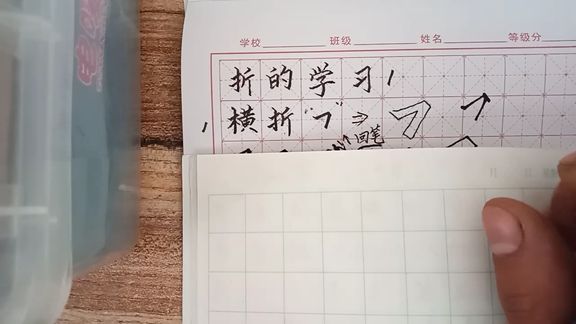 学校 班级 姓名 等级分
折的学习
横折"㇕"⇒
回笔